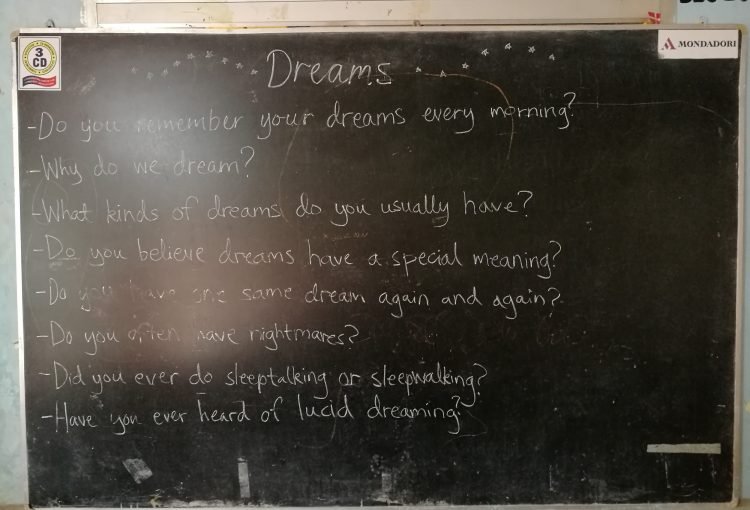 3
CD
MONDADORI
Dreams
-Do you remember your dreams every morning?
-Why do we dream?
-What kinds of dreams do you usually have?
-Do you believe dreams have a special meaning?
-Do you have one same dream again and again?
-Do you often have nightmares?
-Did you ever do sleeptalking or sleepwalking?
-Have you ever heard of lucid dreaming?